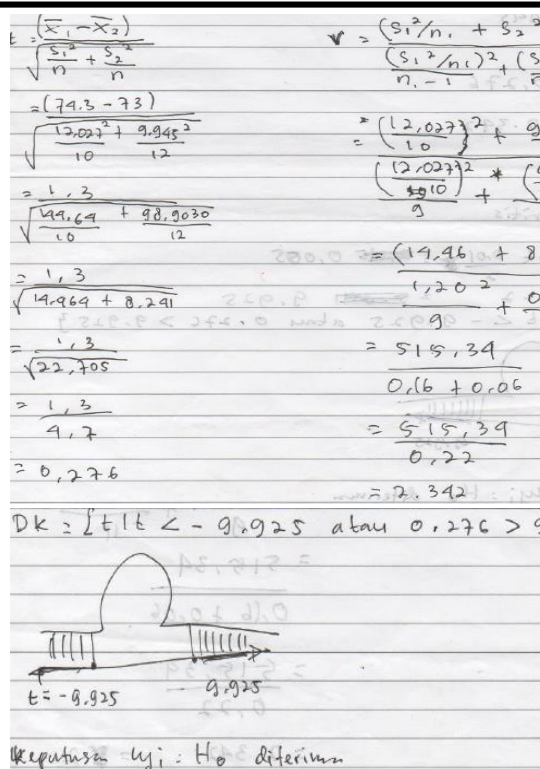 t = (x̄₁ - x̄₂)
√ s₁²/n + s₂²/n
= (74.3 - 73)
√ 12,027²/10 + 9.945²/12
= 1,3
√ 144,64/10 + 98,9030/12
= 1,3
√ 14,464 + 8,241
= 1,3
√22,705
= 1,3
4,7
= 0,276
v = (s₁²/n₁ + s₂²
(s₁²/n₁)²
n₁ - 1
+ (s
= (12,027/10)² + 9
(12,027/10)²
9
+ (
= (14,46 + 8
1,20²
9
+ 0
= 515,34
0,16 + 0,06
= 515,34
0,22
= 2.342
DK = {t|t < - 9.925 atau 0.276 > 9
t = -9.925
9.925
Keputusan Uji : H₀ diterima